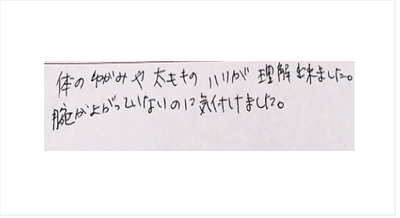 体のゆがみや太ももの ハリが 理解出来ました。
腕が上がっていないのに気付けました。